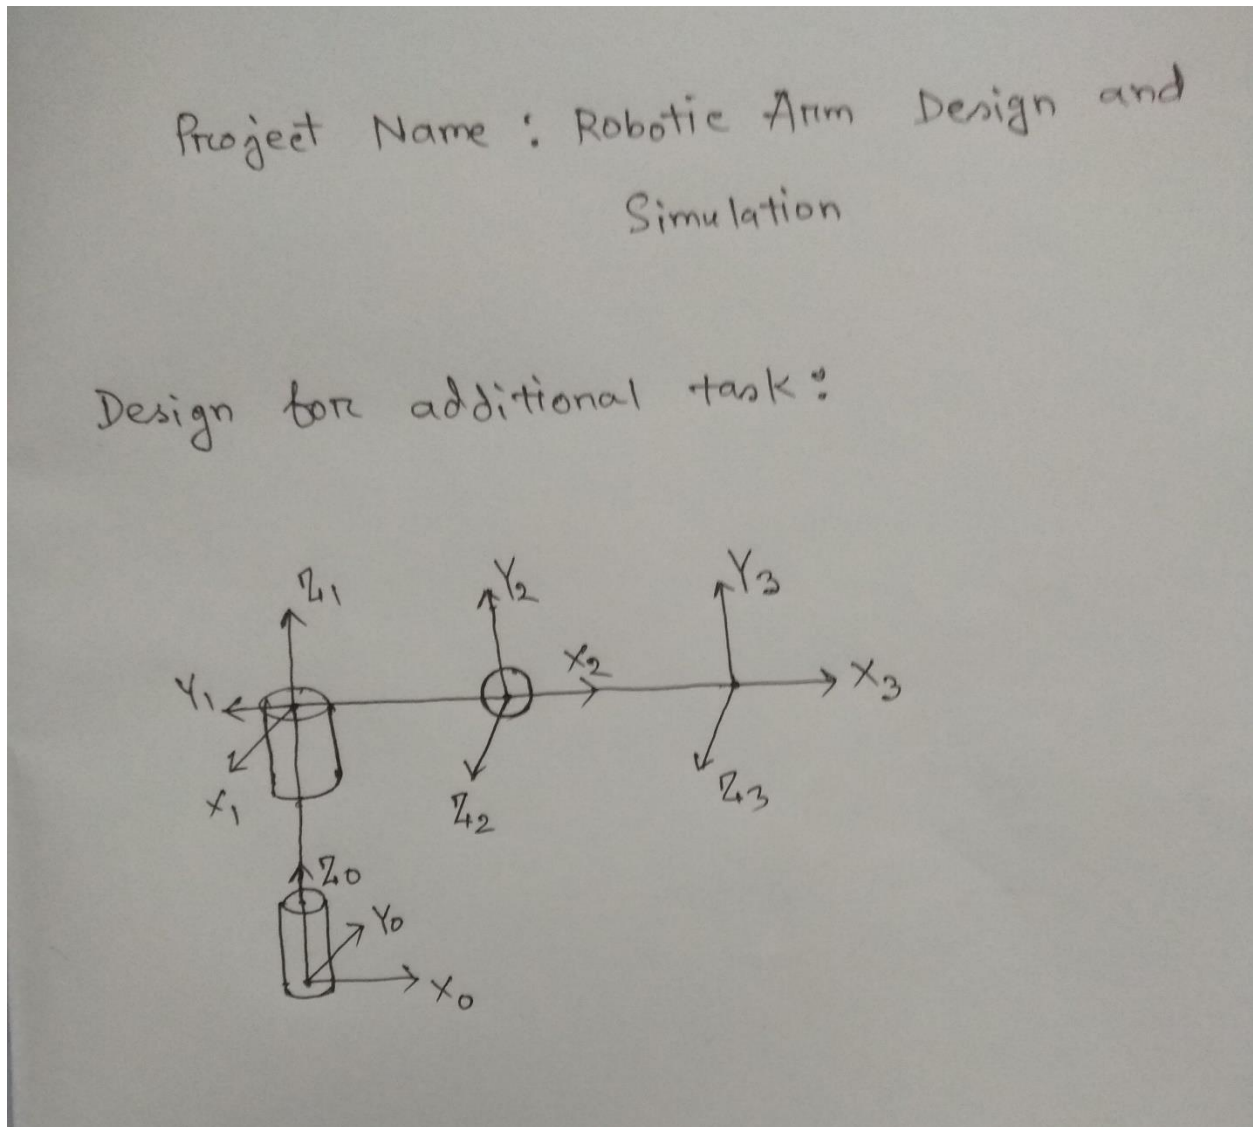 Project Name : Robotic Arm Design and
Simulation
Design for additional task :
Z1
Y2
Y3
Y1
X2
X3
X1
Z2
Z3
Z0
Y0
X0